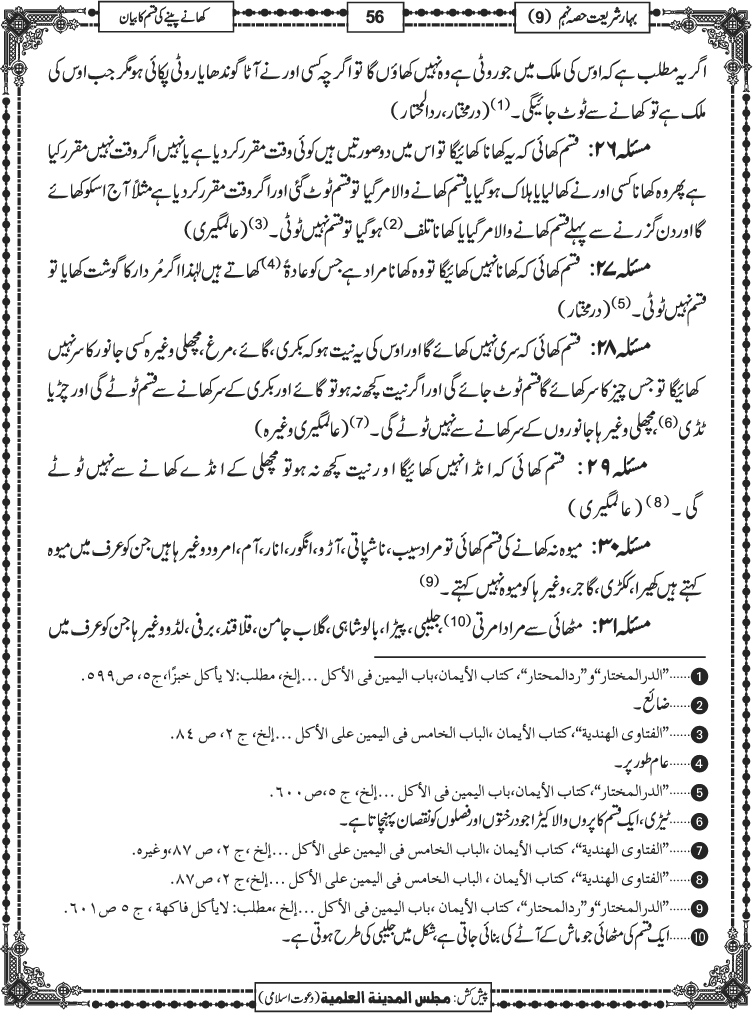 بہارِ شریعت حصہ نہم (9)
56
کھانے پینے کی قسم کا بیان
اگر یہ مطلب ہے کہ اوس کی ملک میں جو روٹی ہے وہ نہیں کھاؤں گا تو اگرچہ کسی اور نے آٹا گوندھا یا روٹی پکائی ہو مگر جب اوس کی
ملک ہے تو کھانے سے ٹوٹ جائیگی۔(1) (درمختار، ردالمحتار)
مسئلہ ۲۶: قسم کھائی کہ یہ کھانا کھائیگا تو اس میں دو صورتیں ہیں کوئی وقت مقرر کردیا ہے یا نہیں اگر وقت نہیں مقرر کیا
ہے پھر وہ کھانا کسی اور نے کھالیا یا ہلاک ہوگیا یا قسم کھانے والا مرگیا تو قسم ٹوٹ گئی اور اگر وقت مقرر کردیا ہے مثلاً آج اسکو کھائے
گا اور دن گزرنے سے پہلے قسم کھانے والا مرگیا یا کھانا تلف(2) ہوگیا تو قسم نہیں ٹوٹی۔(3) (عالمگیری)
مسئلہ ۲۷: قسم کھائی کہ کھانا نہیں کھائیگا تو وہ کھانا مراد ہے جس کو عادۃً(4) کھاتے ہیں لہٰذا اگر مُردار کا گوشت کھایا تو
قسم نہیں ٹوٹی۔(5) (درمختار)
مسئلہ ۲۸: قسم کھائی کہ سری نہیں کھائے گا اور اوس کی یہ نیت ہو کہ بکری، گائے، مرغ، مچھلی وغیرہ کسی جانور کا سر نہیں
کھائیگا تو جس چیز کا سر کھائے گا قسم ٹوٹ جائے گی اور اگر نیت کچھ نہ ہو تو گائے اور بکری کے سر کھانے سے قسم ٹوٹے گی اور چڑیا
ٹڈی(6)، مچھلی وغیرہا جانوروں کے سر کھانے سے نہیں ٹوٹے گی۔(7) (عالمگیری وغیرہ)
مسئلہ ۲۹: قسم کھائی کہ انڈا نہیں کھائیگا اور نیت کچھ نہ ہو تو مچھلی کے انڈے کھانے سے نہیں ٹوٹے
گی۔(8) (عالمگیری)
مسئلہ ۳۰: میوہ نہ کھانے کی قسم کھائی تو مراد سیب، ناشپاتی، آڑو، انگور، انار، آم، امرود وغیرہا ہیں جن کو عرف میں میوہ
کہتے ہیں کھیرا، ککڑی، گاجر، وغیرہا کو میوہ نہیں کہتے۔(9)
مسئلہ ۳۱: مٹھائی سے مراد امرتی(10)، جلیبی، پیڑا، بالوشاہی، گلاب جامن، قلاقند، برفی، لڈو وغیرہا جن کو عرف میں
1 ......"الدرالمختار"و"ردالمحتار"، کتاب الأیمان،باب الیمین فی الأکل ...إلخ، مطلب:لا یأکل خبزًا،ج۵، ص۵۹۹.
2 ......ضائع۔
3 ......"الفتاوی الھندیة"،کتاب الأیمان ،الباب الخامس فی الیمین علی الأکل ...إلخ، ج ۲، ص ۸۴.
4 ......عام طور پر۔
5 ......"الدرالمختار"،کتاب الأیمان،باب الیمین فی الأکل ...إلخ، ج ۵،ص۶۰۰.
6 ......ٹیڑی، ایک قسم کا پروں والا کیڑا جو درختوں اور فصلوں کو نقصان پہنچاتا ہے۔
7 ......"الفتاوی الھندیة"، کتاب الأیمان ،الباب الخامس فی الیمین علی الأکل ...إلخ ،ج ۲، ص ۸۷،وغیرہ.
8 ......"الفتاوی الھندیة"، کتاب الأیمان ، الباب الخامس فی الیمین علی الأکل ...إلخ،ج ۲، ص۸۷.
9 ......"الدرالمختار"و"ردالمحتار"، کتاب الأیمان ،باب الیمین فی الأکل ...إلخ ،مطلب: لایأکل فاکھة ، ج ۵ ص۶۰۱.
10 ......ایک قسم کی مٹھائی جو ماش کے آٹے کی بنائی جاتی ہے، شکل میں جلیبی کی طرح ہوتی ہے۔
پیش کش: مجلس المدینة العلمیة (دعوت اسلامی)